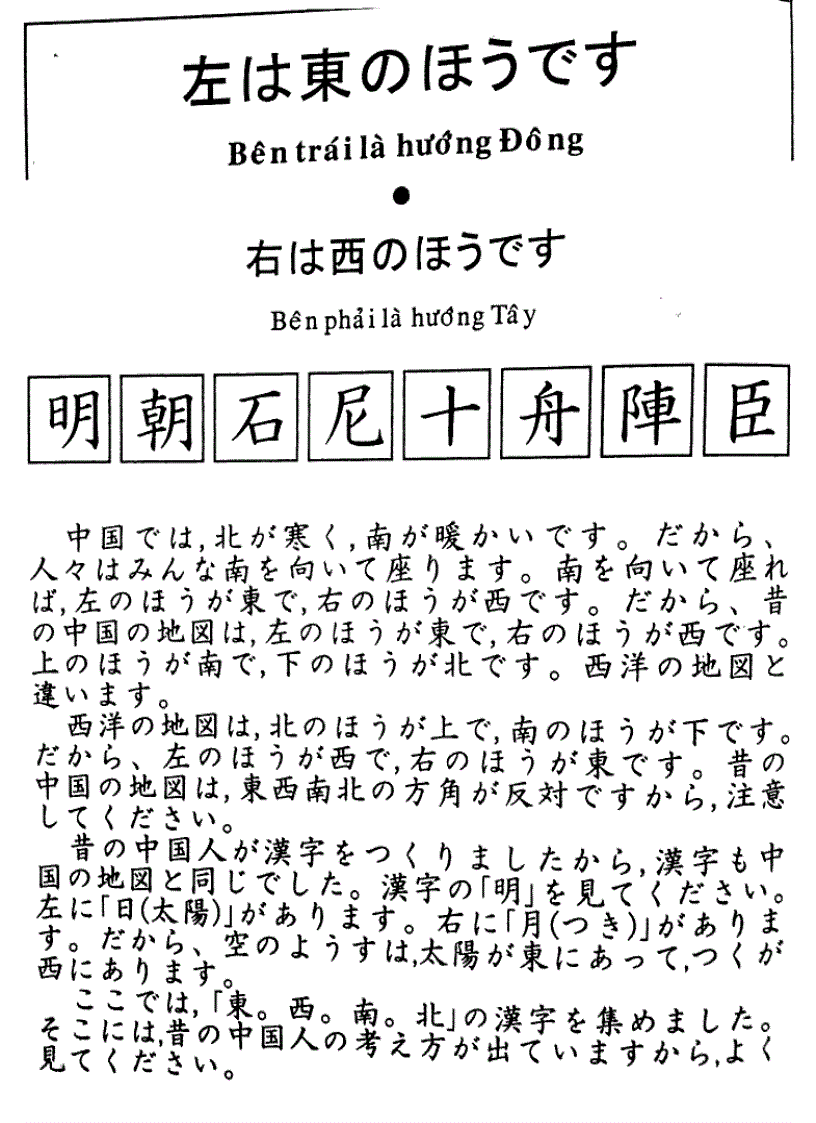 左は東のほうです
Bên trái là hướng Đông
●
右は西のほうです
Bên phải là hướng Tây
明 朝 石 尼 十 舟 陣 臣
中国では,北が寒く,南が暖かいです。だから、
人々はみんな南を向いて座ります。南を向いて座れ
ば,左のほうが東で,右のほうが西です。だから、昔
の中国の地図は,左のほうが東で,右のほうが西です。
上のほうが南で,下のほうが北です。西洋の地図と
違います。
西洋の地図は,北のほうが上で,南のほうが下です。
だから、左のほうが西で,右のほうが東です。昔の
中国の地図は,東西南北の方角が反対ですから,注意
してください。
昔の中国人が漢字をつくりましたから,漢字も中
国の地図と同じでした。漢字の「明」を見てください。
左に「日(太陽)」があります。右に「月(つき)」がありま
す。だから、空のようすは,太陽が東にあって,つくが
西にあります。
ここでは,「東。西。南。北」の漢字を集めました。
そこには,昔の中国人の考え方が出ていますから,よく
見てください。